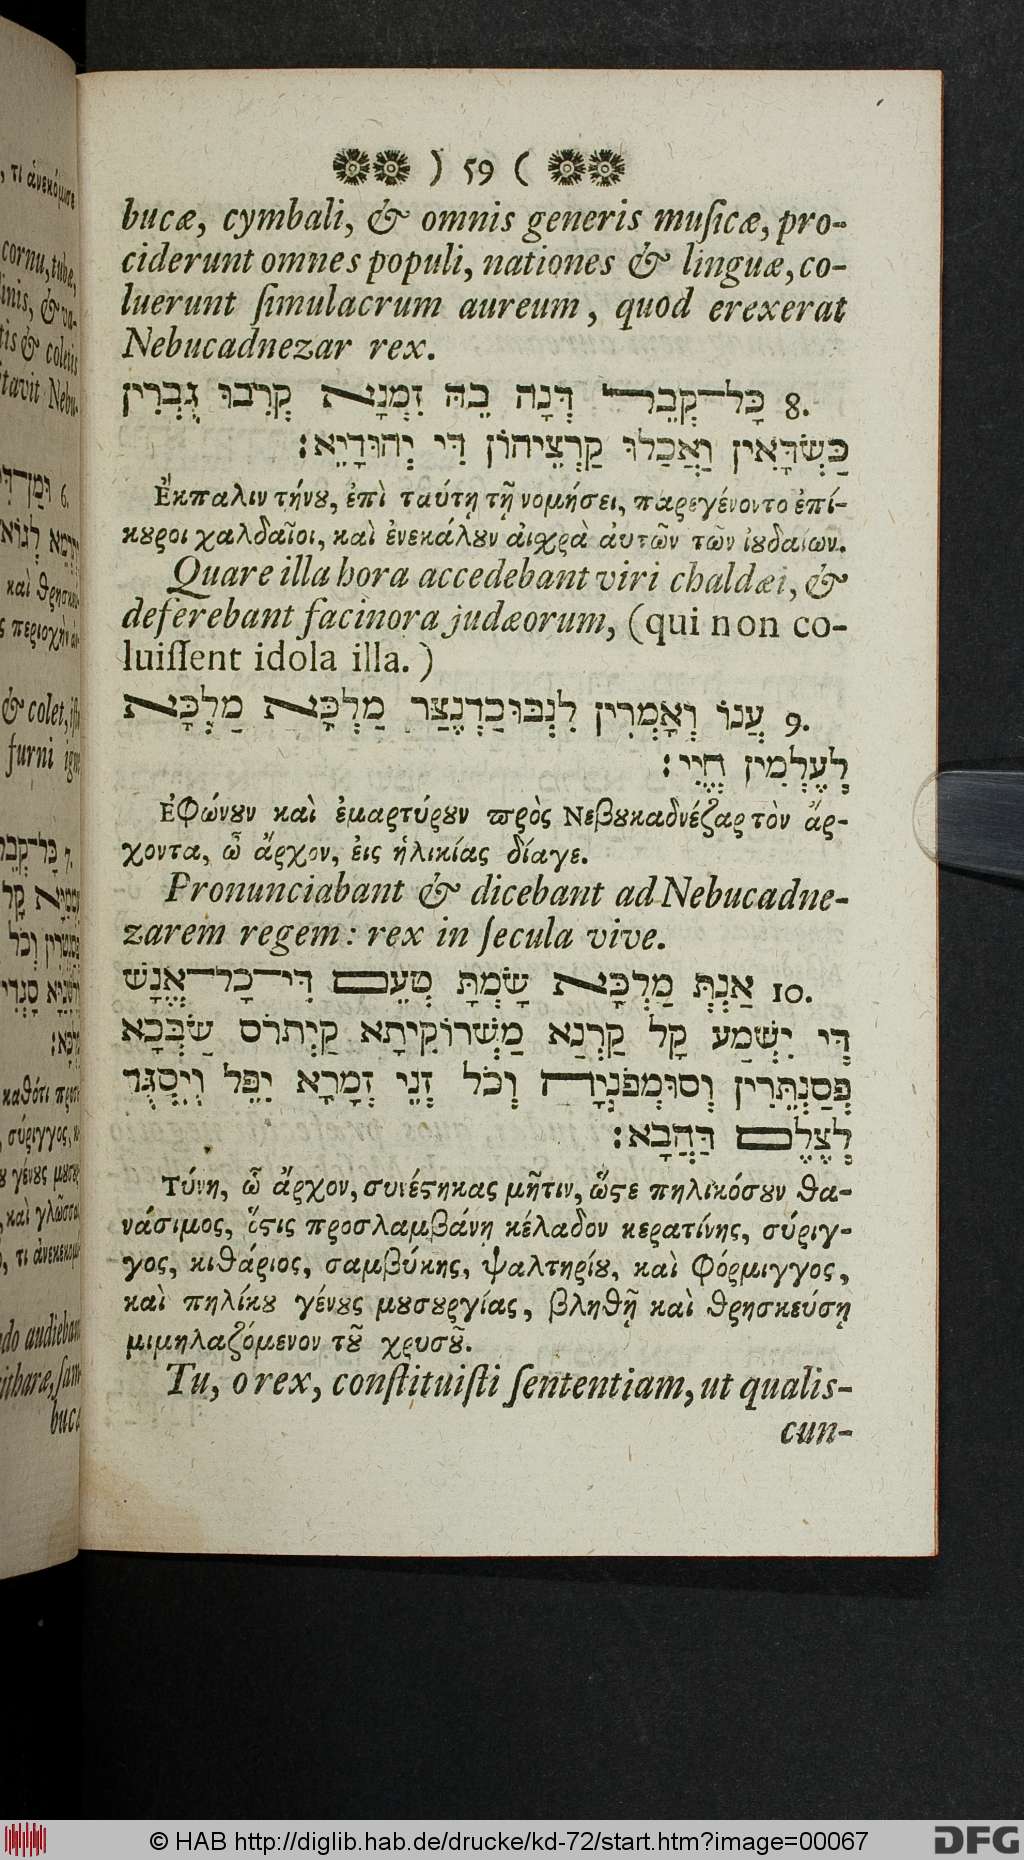 ) 59 (
bucæ, cymbali, & omnis generis muſicæ, pro-
ciderunt omnes populi, nationes & linguæ, co-
luerunt ſimulacrum aureum, quod erexerat
Nebucadnezar rex.
8. כָּל־קֳבֵל דְּנָה בֵהּ זִמְנָא קְרִבוּ גֻּבְרִין
כַּשְׂדָּאִין וַאֲכַלוּ קַרְצֵיהוֹן דִּי יְהוּדָיֵא׃
Ἔκπαλιν τήνȣ, ἐπὶ ταύτῃ τῇ νομήσει, παρεγένοντο ἐπί-
κȣροι χαλδαῖοι, καὶ ἐνεκάλȣν ἀιχρὰ ἀυτῶν τῶν ἰȣδαίων.
Quare illa hora accedebant viri chaldæi, &
deferebant facinora judæorum, (qui non co-
luiſſent idola illa.)
9. עֲנוֹ וְאָמְרִין לִנְבוּכַדְנֶצַּר מַלְכָּא מַלְכָּא
לְעָלְמִין חֱיִי׃
Ἐφώνȣν καὶ ἐμαρτύρȣν ϖρὸς Νεβȣκαδνέζαρ τὸν ἄρ-
χοντα, ὦ ἄρχον, ἐις ἡλικίας δίαγε.
Pronunciabant & dicebant ad Nebucadne-
zarem regem: rex in ſecula vive.
10. אַנְתְּ מַלְכָּא שָׂמְתָּ טְעֵם דִּי־כָל־אֱנָשׁ
דִּי יִשְׁמַע קָל קַרְנַא מַשְׁרוֹקִיתָא קַיְתרוֹס שַׂבְּכָא
פְּסַנְתֵּרִין וְסוּמְפֹּנְיָה וְכֹל זְנֵי זְמָרָא יִפֵּל וְיִסְגֻּד
לְצֶלֶם דַּהֲבָא׃
Τύνη, ὦ ἄρχον, συνέϛηκας μῆτιν, ὥϛε πηλικόσȣν θα-
νάσιμος, ὅϛις προσλαμβάνῃ κέλαδον κερατίνης, σύριγ-
γος, κιθάριος, σαμβύκης, ψαλτηρίȣ, καὶ Φόρμιγγος,
καὶ πηλίκȣ γένȣς μȣσȣργίας, βληθῇ καὶ θρησκεύσῃ
μιμηλαζόμενον τȣ͂ χρυσȣ͂.
Tu, o rex, conſtituiſti ſententiam, ut qualis-
cun-
© HAB http://diglib.hab.de/drucke/kd-72/start.htm?image=00067
DFG